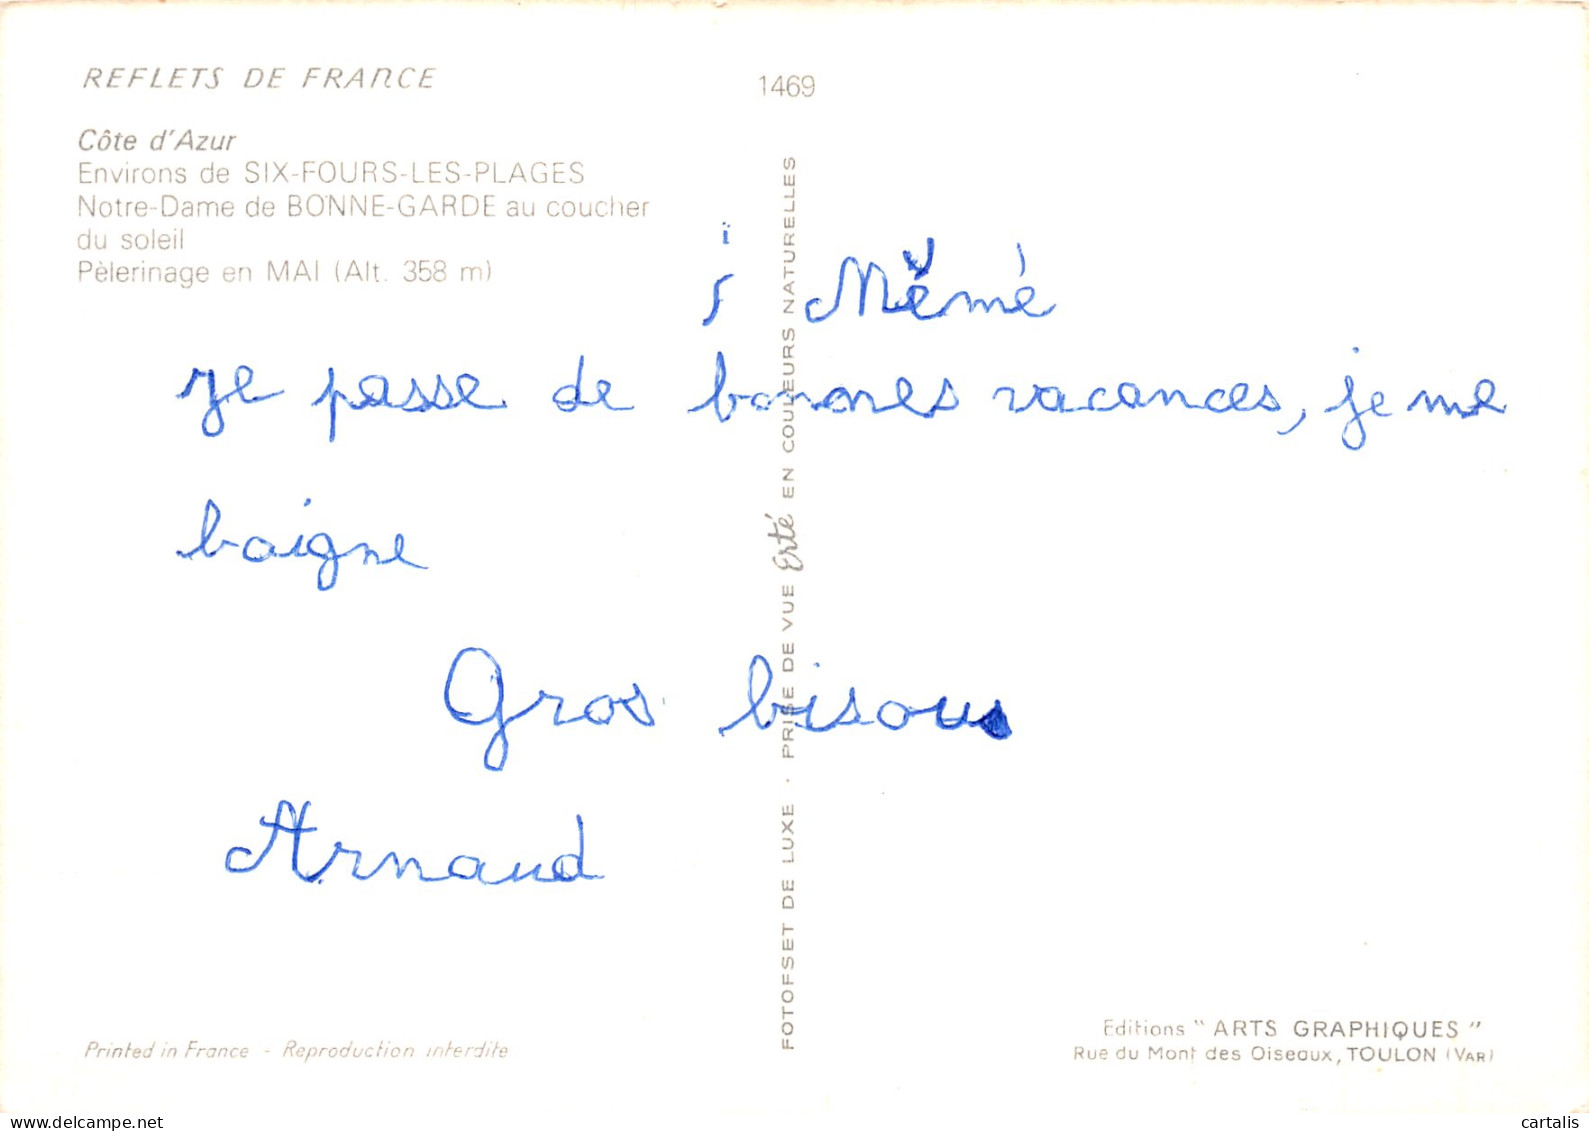 REFLETS DE FRANCE
1469
Côte d'Azur
Environs de SIX-FOURS-LES-PLAGES
Notre-Dame de BONNE-GARDE au coucher
du soleil
Pèlerinage en MAI (Alt. 358 m)
Mémé
je passe de bonnes vacances, je me
baigne
Gros bisous
Arnaud
FOTOFSET DE LUXE · PRISE DE VUE Erté EN COULEURS NATURELLES
Editions "ARTS GRAPHIQUES"
Rue du Mont des Oiseaux, TOULON (VAR)
Printed in France - Reproduction interdite
delcampe.net
cartalis